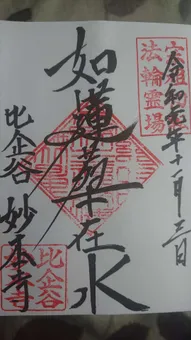 令和元年十一月三日
法輪霊場
如蓮華在水
比企谷 妙本寺
比企谷
妙本寺